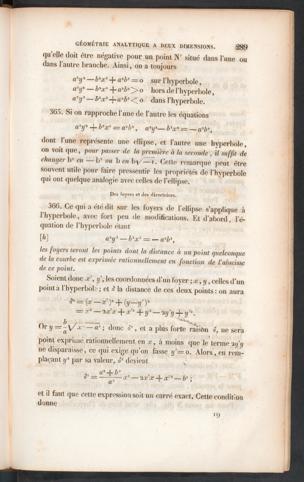 GÉOMÉTRIE ANALYTIQUE A DEUX DIMENSIONS. 289
qu'elle doit être négative pour un point N' situé dans l'une ou
dans l'autre branche. Ainsi, on a toujours
a²y² — b²x² + a²b² = 0 sur l'hyperbole,
a²y² — b²x² + a²b² > 0 hors de l'hyperbole,
a²y² — b²x² + a²b² < 0 dans l'hyperbole.
365. Si on rapproche l'une de l'autre les équations
a²y² + b²x² = a²b², a²y² — b²x² = — a²b²,
dont l'une représente une ellipse, et l'autre une hyperbole,
on voit que, pour passer de la première à la seconde, il suffit de
changer b² en — b² ou b en b√—1. Cette remarque peut être
souvent utile pour faire pressentir les propriétés de l'hyperbole
qui ont quelque analogie avec celles de l'ellipse.
Des foyers et des directrices.
366. Ce qui a été dit sur les foyers de l'ellipse s'applique à
l'hyperbole, avec fort peu de modifications. Et d'abord, l'é-
quation de l'hyperbole étant
[h] a²y² — b²x² = — a²b²,
les foyers seront les points dont la distance à un point quelconque
de la courbe est exprimée rationnellement en fonction de l'abscisse
de ce point.
Soient donc x', y', les coordonnées d'un foyer; x, y, celles d'un
point à l'hyperbole; et δ la distance de ces deux points: on aura
δ² = (x — x')² + (y — y')²
= x² — 2x'x + x'² + y² — 2y'y + y'².
Or y = b/a √x² — a²; donc δ², et à plus forte raison δ, ne sera
point exprimé rationnellement en x, à moins que le terme 2y'y
ne disparaisse, ce qui exige qu'on fasse y' = 0. Alors, en rem-
plaçant y² par sa valeur, δ² devient
δ² = a² + b²/a² x² — 2x'x + x'² — b²;
et il faut que cette expression soit un carré exact. Cette condition
donne
19